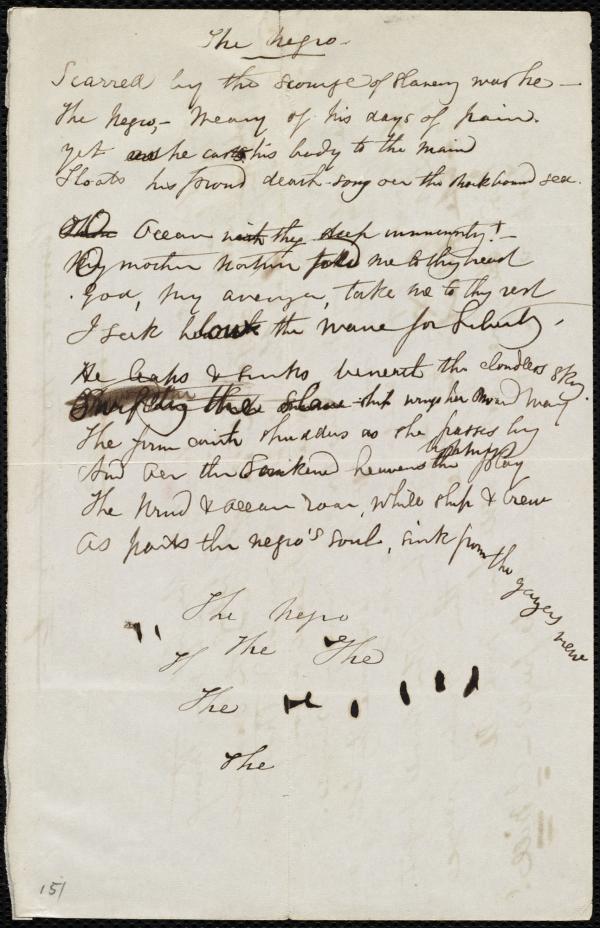 The Negro.
Scarred by the scourge of Slavery was he —
The Negro, – Weary of his days of pain.
Yet as he casts his body to the main
Floats his proud death-song over the rock bound sea.
Ocean with thy deep immensity! –
My mother Northern fold me to thy head
God, my avenger, take me to thy rest
I seek below the wave for Liberty.
He leaps & sinks beneath the cloudless sky.
the slave ship wings her onward way
The firm with shudders as she passes by
And o'er the darkened heavens the lightnings play
The Wind & Ocean roar, while ship & Crew
As parts the negro's soul, sink from the gazers view
The Negro
If The The
The
The
151